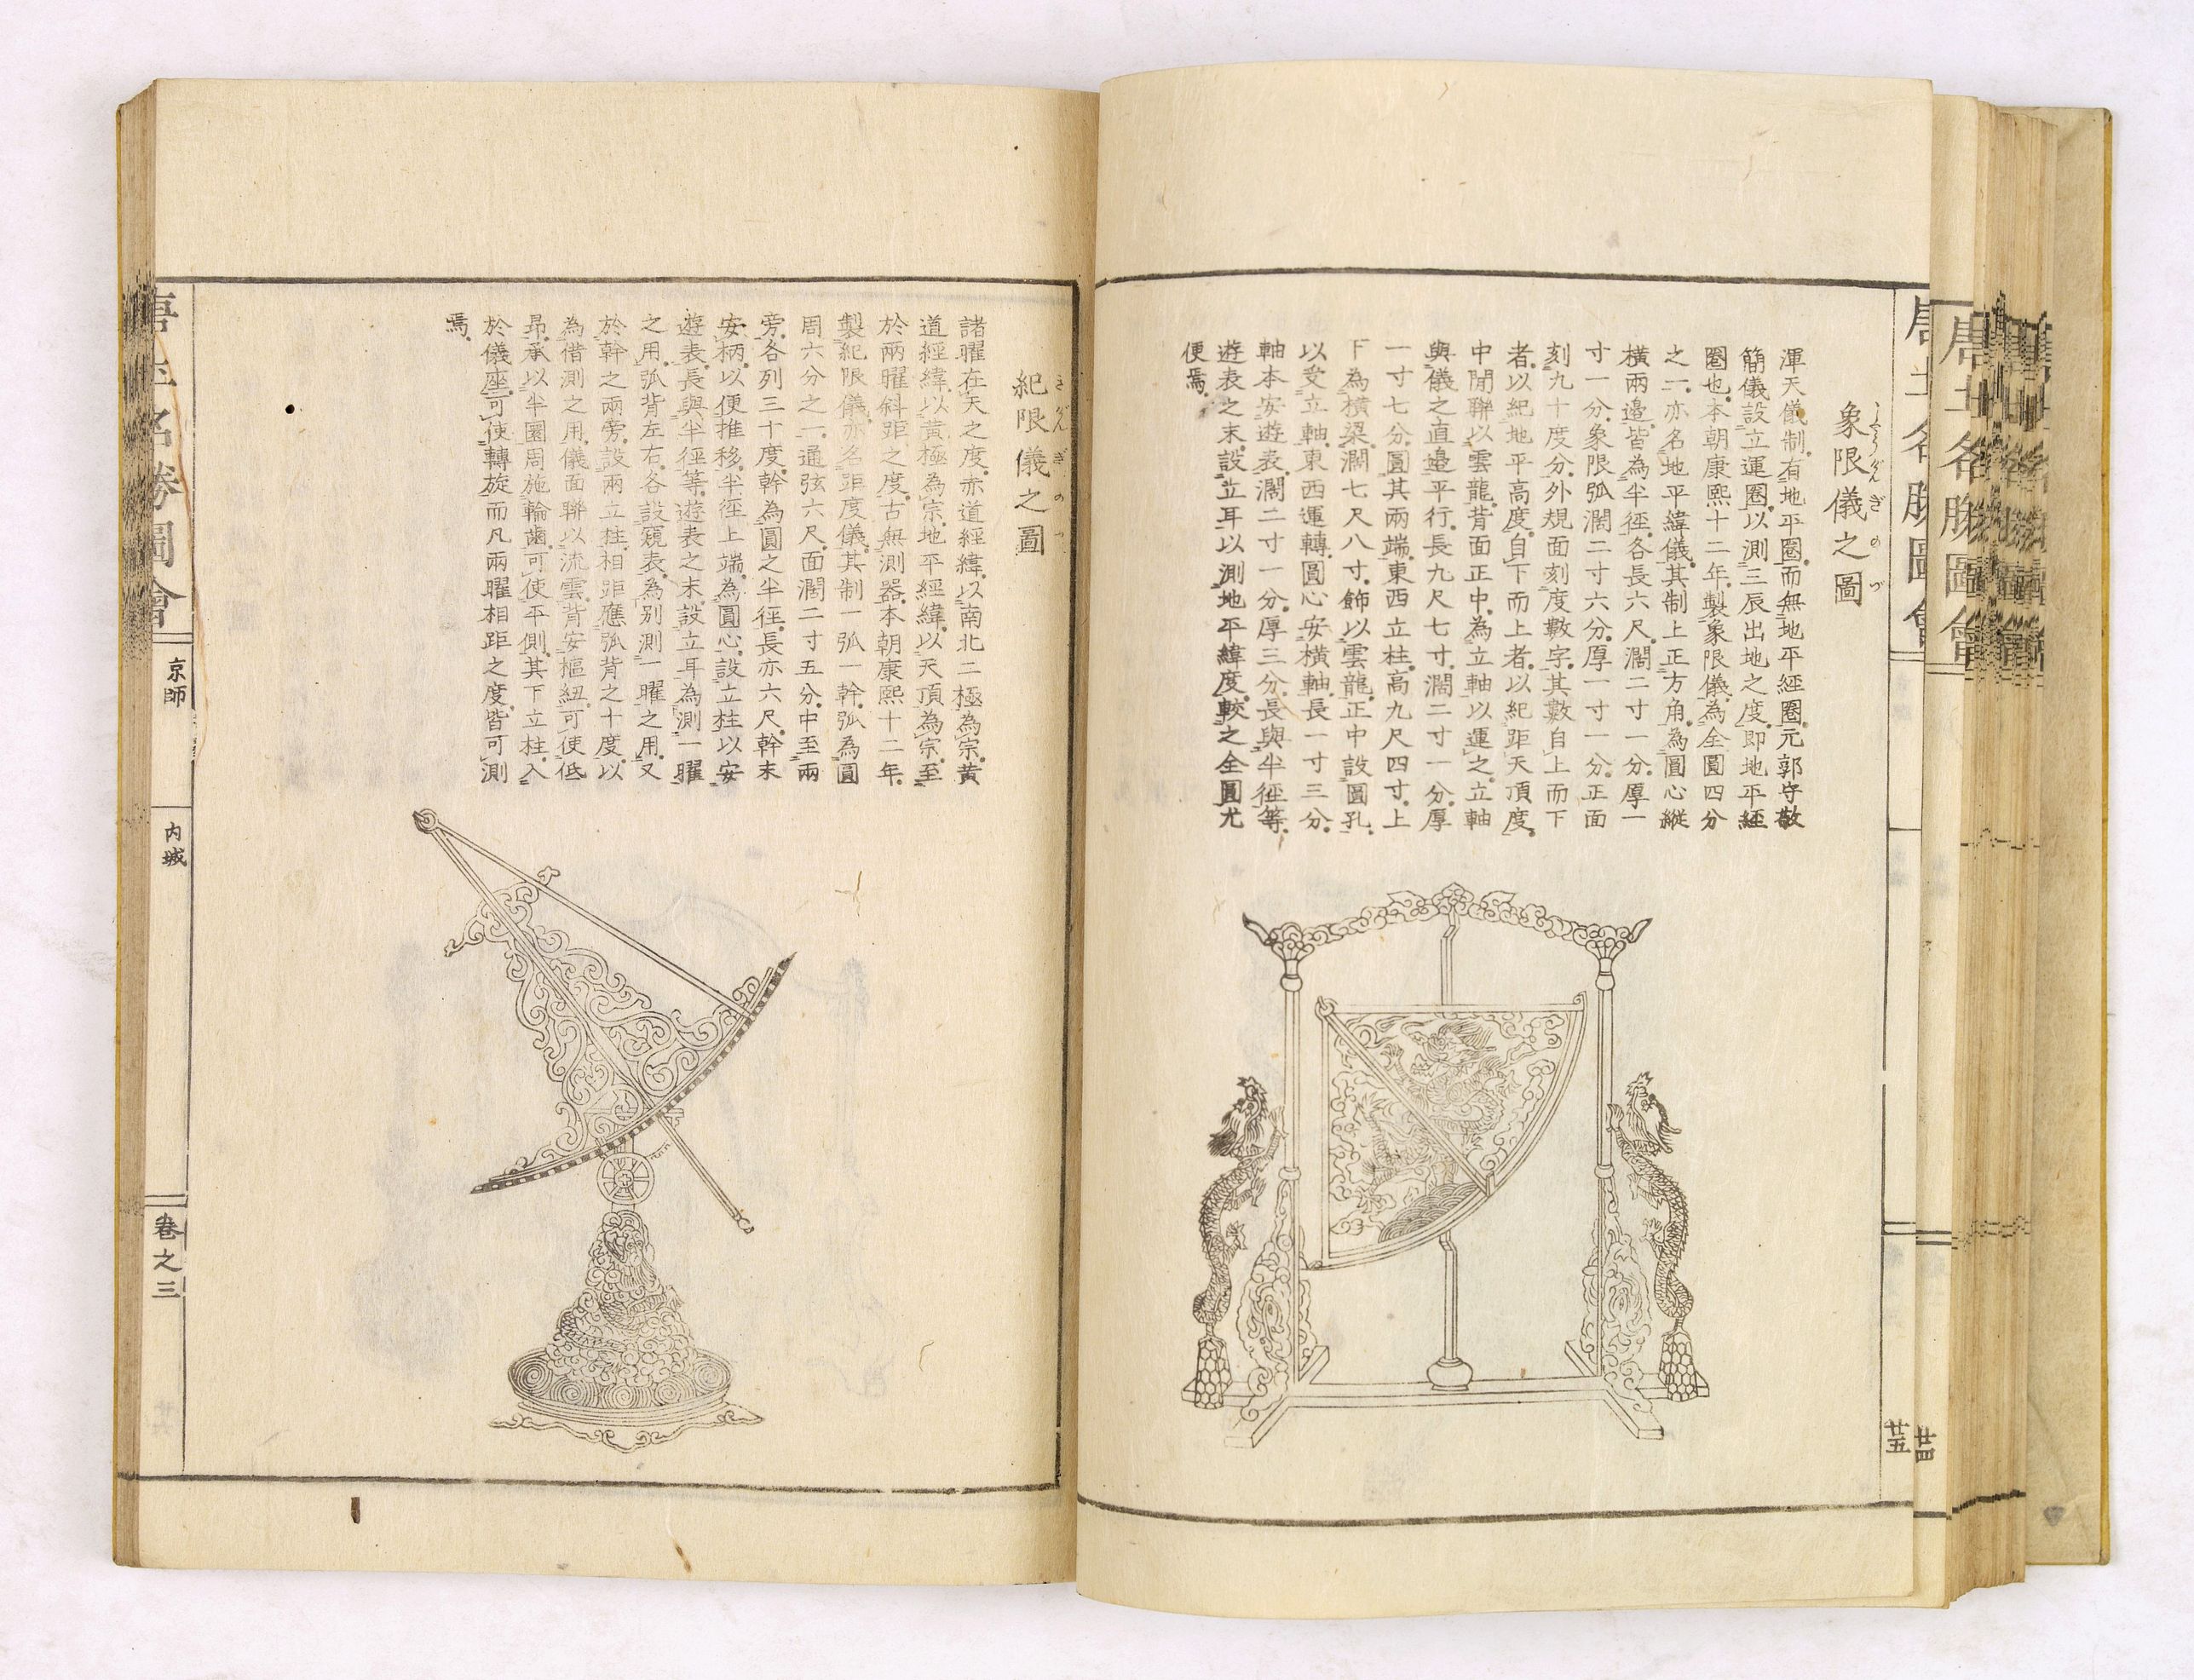 象限儀之圖
渾天儀制有地平圏而無地平經圏元郭守敬
簡儀設立運圏以測三辰出地之度即地平經
圏也本朝康熙十二年製象限儀為全圓四分
之一亦名地平緯儀其制上正方角為圓心縱
橫兩邊皆為半徑各長六尺濶二寸一分厚一
寸一分象限弧濶二寸六分厚一寸一分正面
刻九十度分外規面刻度數字其數自上而下
者以紀地平高度自下而上者以紀距天頂度
中間聯以雲龍背面正中為立軸以運之立軸
與儀之直邊平行長九尺七寸濶二寸一分厚
一寸七分圓其兩端東西立柱高九尺四寸上
下為横梁濶七尺八寸飾以雲龍正中設圓孔
以受立軸東西運轉圓心安横軸長一寸三分
軸本安遊表濶二寸一分厚三分長與半徑等
遊表之末設立耳以測地平緯度較之全圓尤
便焉
廿五
唐土名勝圖會
廿四
紀限儀之圖
諸曜在天之度赤道經緯以南北二極為宗黃
道經緯以黃極為宗地平經緯以天頂為宗至
於兩曜斜距之度古無測器本朝康熙十二年
製紀限儀亦名距度儀其制一弧一幹弧為圓
周六分之一通弦六尺面濶二寸五分中至兩
旁各列三十度幹為圓之半徑長亦六尺幹末
安柄以便推移半徑上端為圓心設立柱以安
遊表長與半徑等遊表之末設立耳為測一曜
之用弧背左右各設窺表為別測一曜之用又
於幹之兩旁設兩立柱相距應弧背之十度以
為借測之用儀面聯以流雲背安樞紐可使低
昂承以半圜周施輪齒可使平側其下立柱入
於儀座可使轉旋而凡兩曜相距之度皆可測
焉
唐土名勝圖會
京師
内城
卷之三